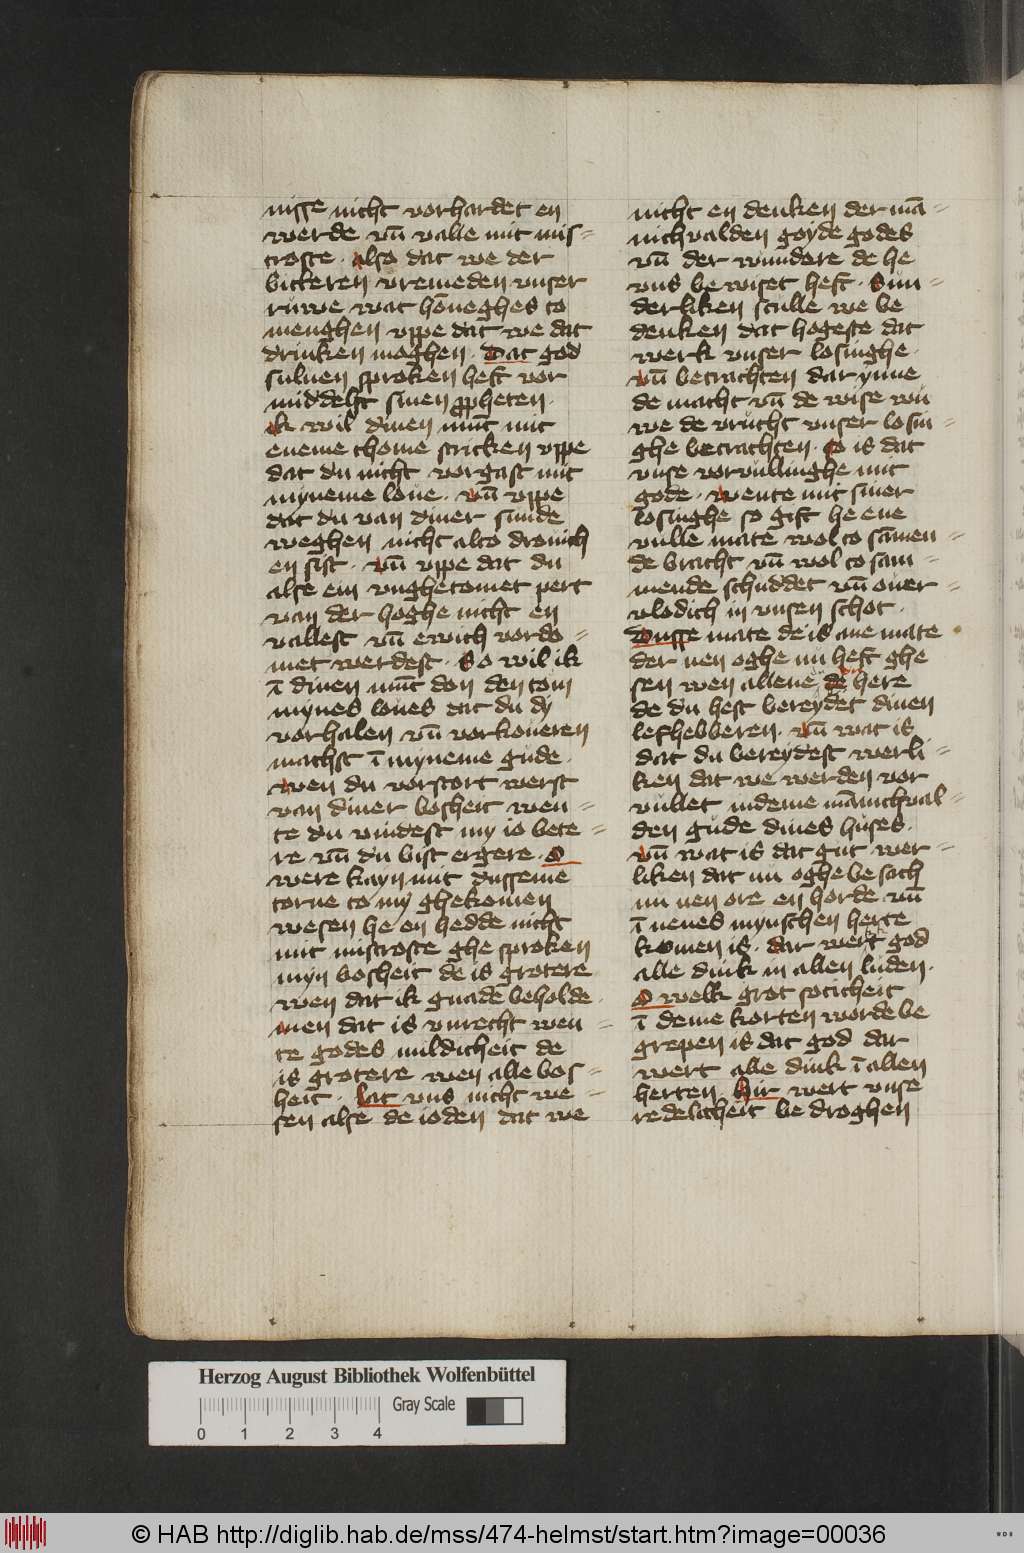 nisse nicht vorhardet en
werde vn̄ valle mit mis=
troste · Also dat we der
bitteren vremeden vnser
ruwe wat hōneghes to
menghen vppe dat we dat
drinken moghen · Dat god
suluen sproken heft vor
middelst sinen ꝓpheten ·
Ik wil dinen mūt mit
eneme thome stricken vppe
dat du nicht vorgast mit
myneme loue · Vn̄ vppe
dat du van diner sunde
weghen nicht alto dronich
en sist · Vn̄ vppe dat du
alse ein vnghetomet pert
van der hoghe nicht en
vallest vn̄ ewich vordo=
met werdest · So wil ik
ī dinen mūt don den tom
mynes loues dat du dy
vorhalen vn̄ vorkoueren
machst ī myneme gude ·
Wen du vorstort werst
van diner bosheit wen=
te du vindest my io bete=
re vn̄ du bist ergere · O
were kayn mit dusseme
torne to my ghekomen
wesen he en hedde nicht
mit mistroste ghe sproken
myn bosheit de is grotere
wen dat ik gnade beholde ·
Men dat is vnrecht wen=
te godes mildicheit de
is grotere wen alle bos=
heit · Lat vns nicht we=
sen alse de ioden dat we
nicht en denken der mā=
nichualden goyde godes
vn̄ der wundere de he
vns bewiset heft · Sun=
derliken sculle we be
denken dat hogeste dat
werk vnser losinghe ·
Vn̄ betrachten dar ynne
de macht vn̄ de wise wū
we de vrucht vnser losin=
ghe betrachten · So is dat
vnse vorvullinghe mit
gode · Wente mit siner
losinghe so gift he ene
vulle mate wol to sāmen=
de bracht vn̄ wol to sam=
mende schuddet vn̄ ouer=
vlodich in vnsen schot ·
Dusse mate de is ane mate
der nen oghe nu heft ghe
sen wen allene de here
de du hest bereydet dinen
lefhebberen · Vn̄ wat is
dat du bereydest werli=
ken dat we werden vor
vullet indeme mānichual=
den gude dines huses ·
Vn̄ wat is dat gut wer=
liken dat nu oghe be sach
nu nen ore en horde vn̄
ī nenes mynschen herte
komen is · dar wert god
alle dink in allen luden ·
O welk grot soticheit
ī deme korten worde be
grepen is dat god dar
wert alle dink ī allen
herten Hir wert vnse
redelicheit be droghen
Herzog August Bibliothek Wolfenbüttel
Gray Scale
0 1 2 3 4
© HAB http://diglib.hab.de/mss/474-helmst/start.htm?image=00036